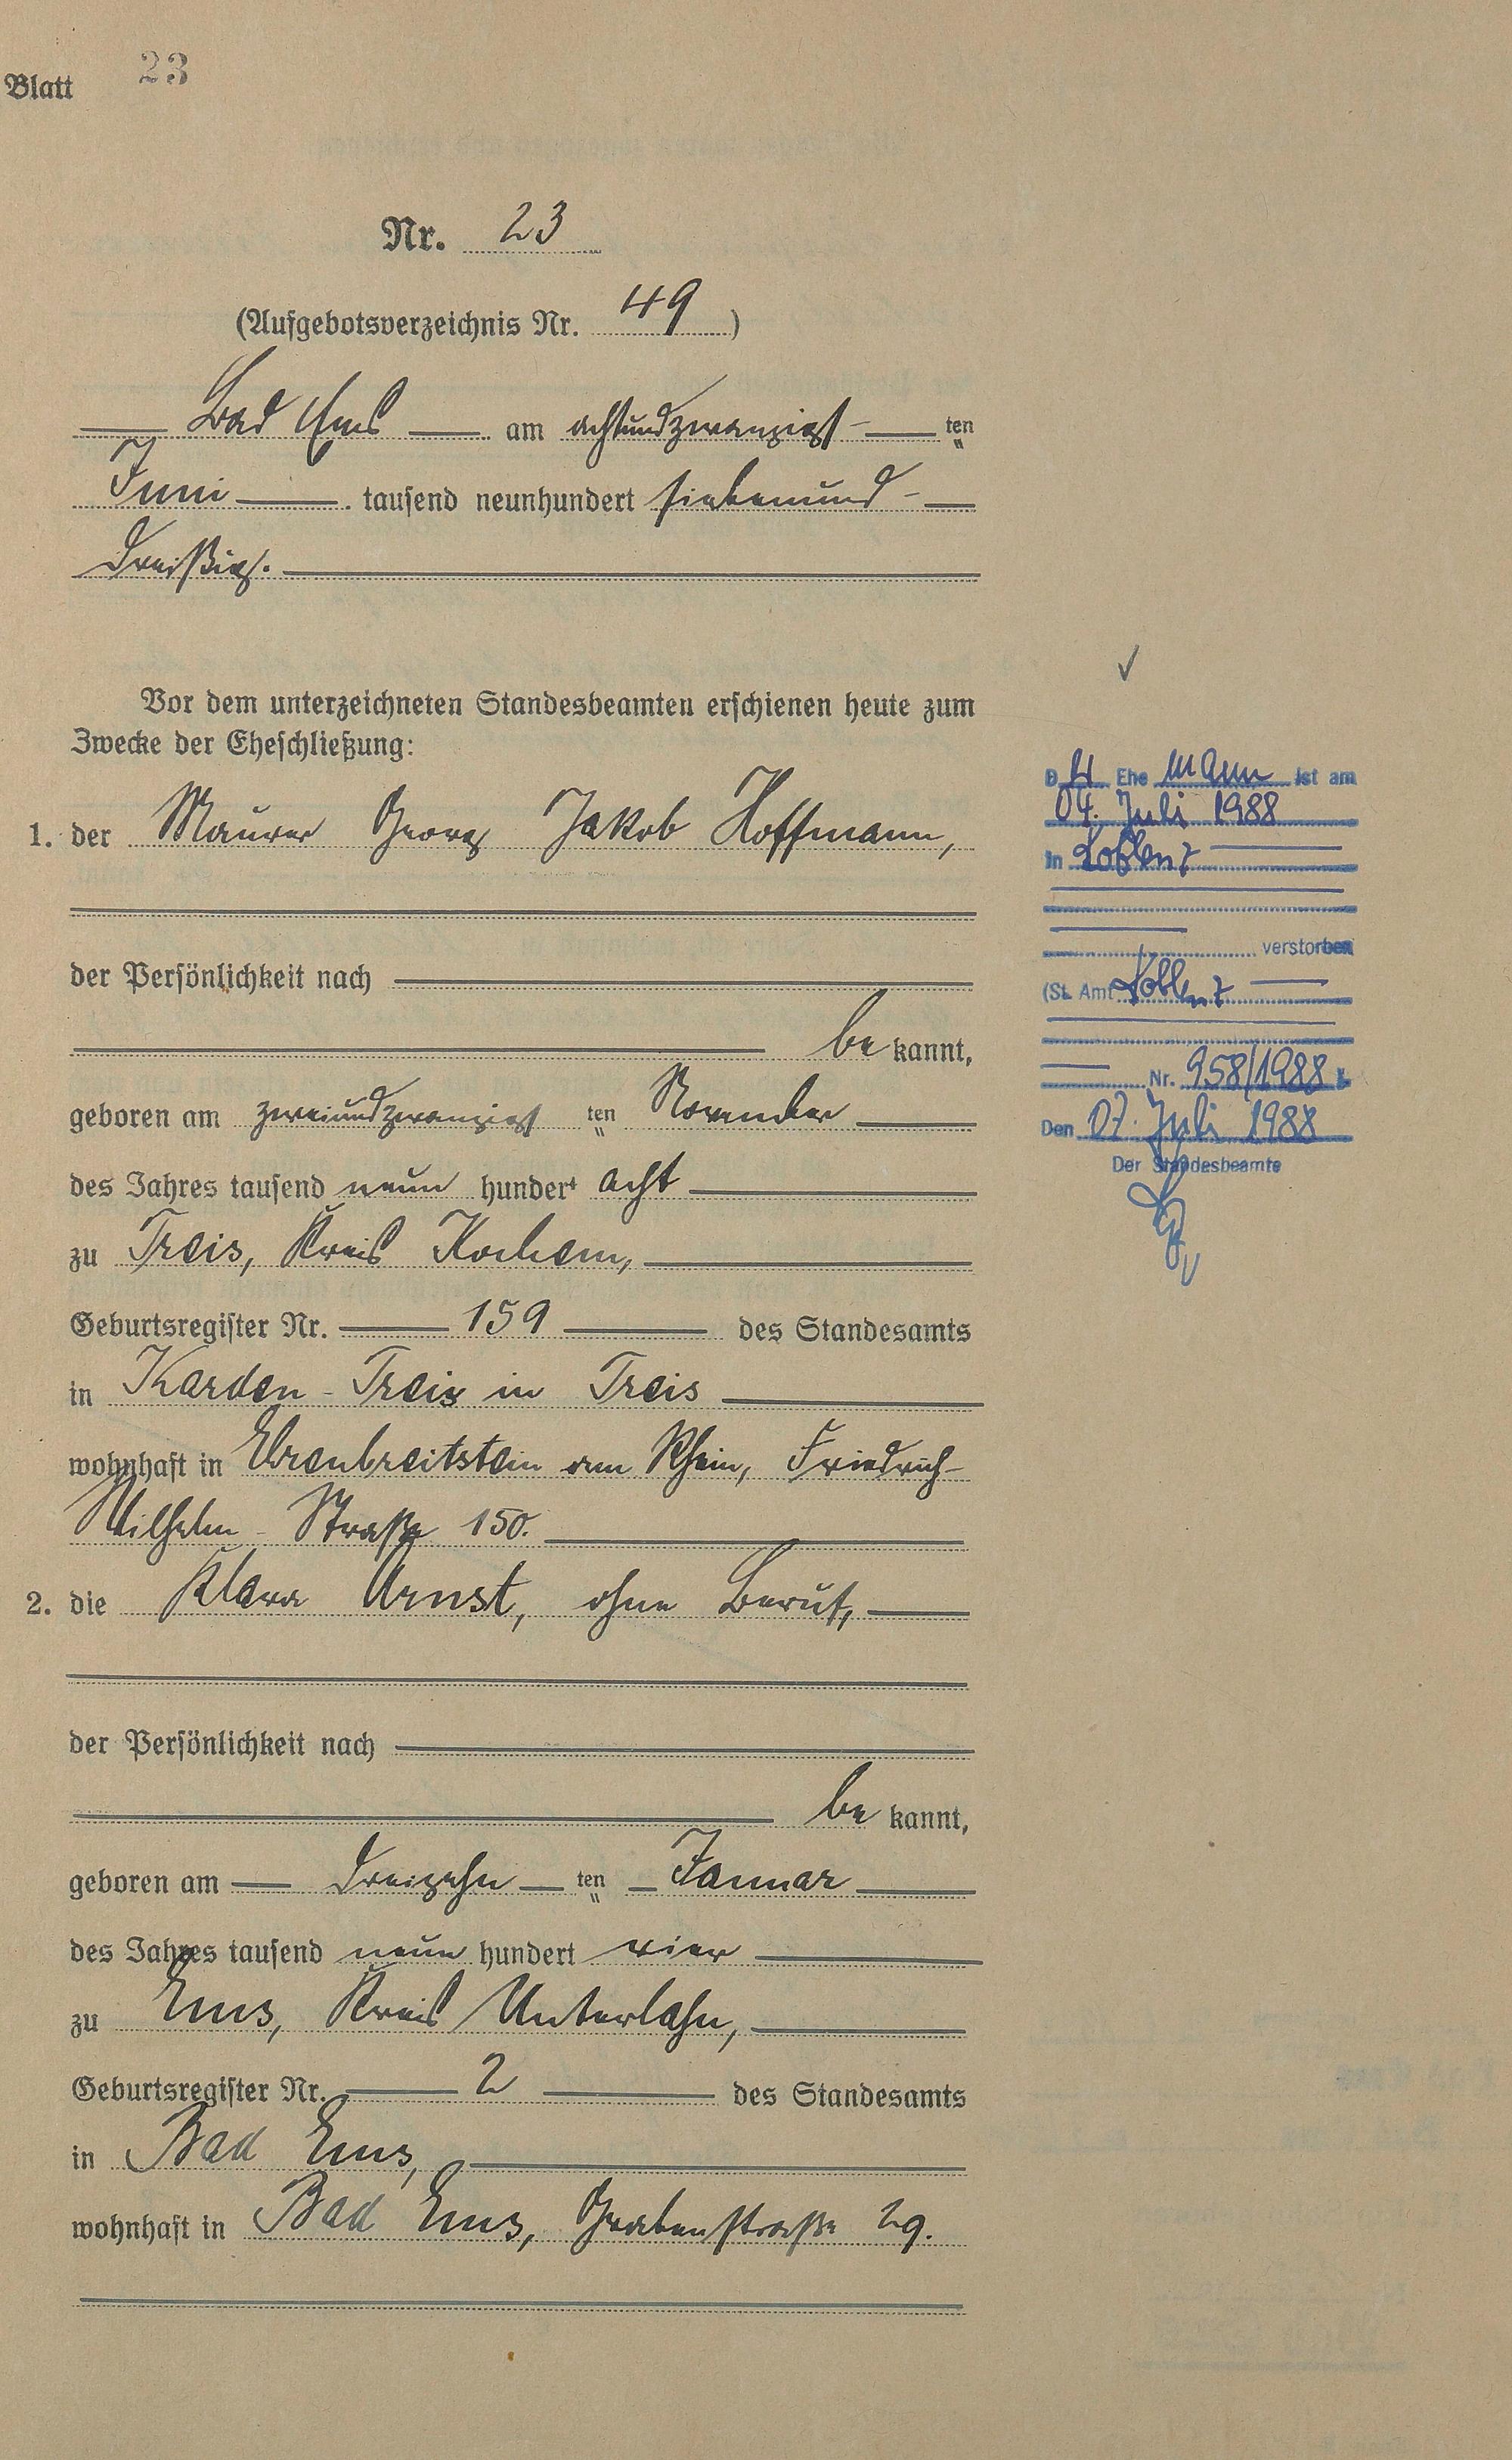 Blatt 23
Nr. 23
(Aufgebotsverzeichnis Nr. 49)
Bad Ems am achtundzwanzigst ten
Juni tausend neunhundert siebenund-
dreißig.
Vor dem unterzeichneten Standesbeamten erschienen heute zum
Zwecke der Eheschließung:
1. der Maurer Georg Jakob Hoffmann,
der Persönlichkeit nach
be kannt,
geboren am zweiundzwanzigst ten November
des Jahres tausend neun hundert acht
zu Treis, Kreis Kochem,
Geburtsregister Nr. 159 des Standesamts
in Karden-Treis in Treis
wohnhaft in Ehrenbreitstein am Rhein, Friedrich-
Wilhelm-Straße 150.
2. die Klara Arnst, ohne Beruf,
der Persönlichkeit nach
be kannt,
geboren am dreizehn ten Januar
des Jahres tausend neun hundert vier
zu Ems, Kreis Unterlahn,
Geburtsregister Nr. 2 des Standesamts
in Bad Ems,
wohnhaft in Bad Ems, Grabenstraße 29.
D er Ehe mann ist am
04. Juli 1988
in Koblenz
verstorben
(St. Amt Koblenz
Nr. 958/1988
Den 07. Juli 1988
Der Standesbeamte